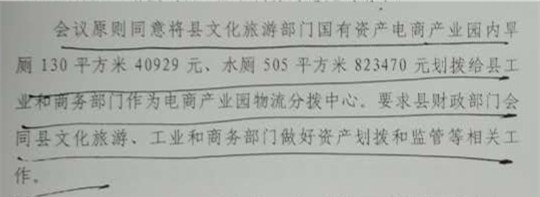 会议原则同意将县文化旅游部门国有资产电商产业园内旱
厕 130 平方米 40929 元、水厕 505 平方米 823470 元划拨给县工
业和商务部门作为电商产业园物流分拨中心。要求县财政部门会
同县文化旅游、工业和商务部门做好资产划拨和监管等相关工
作。